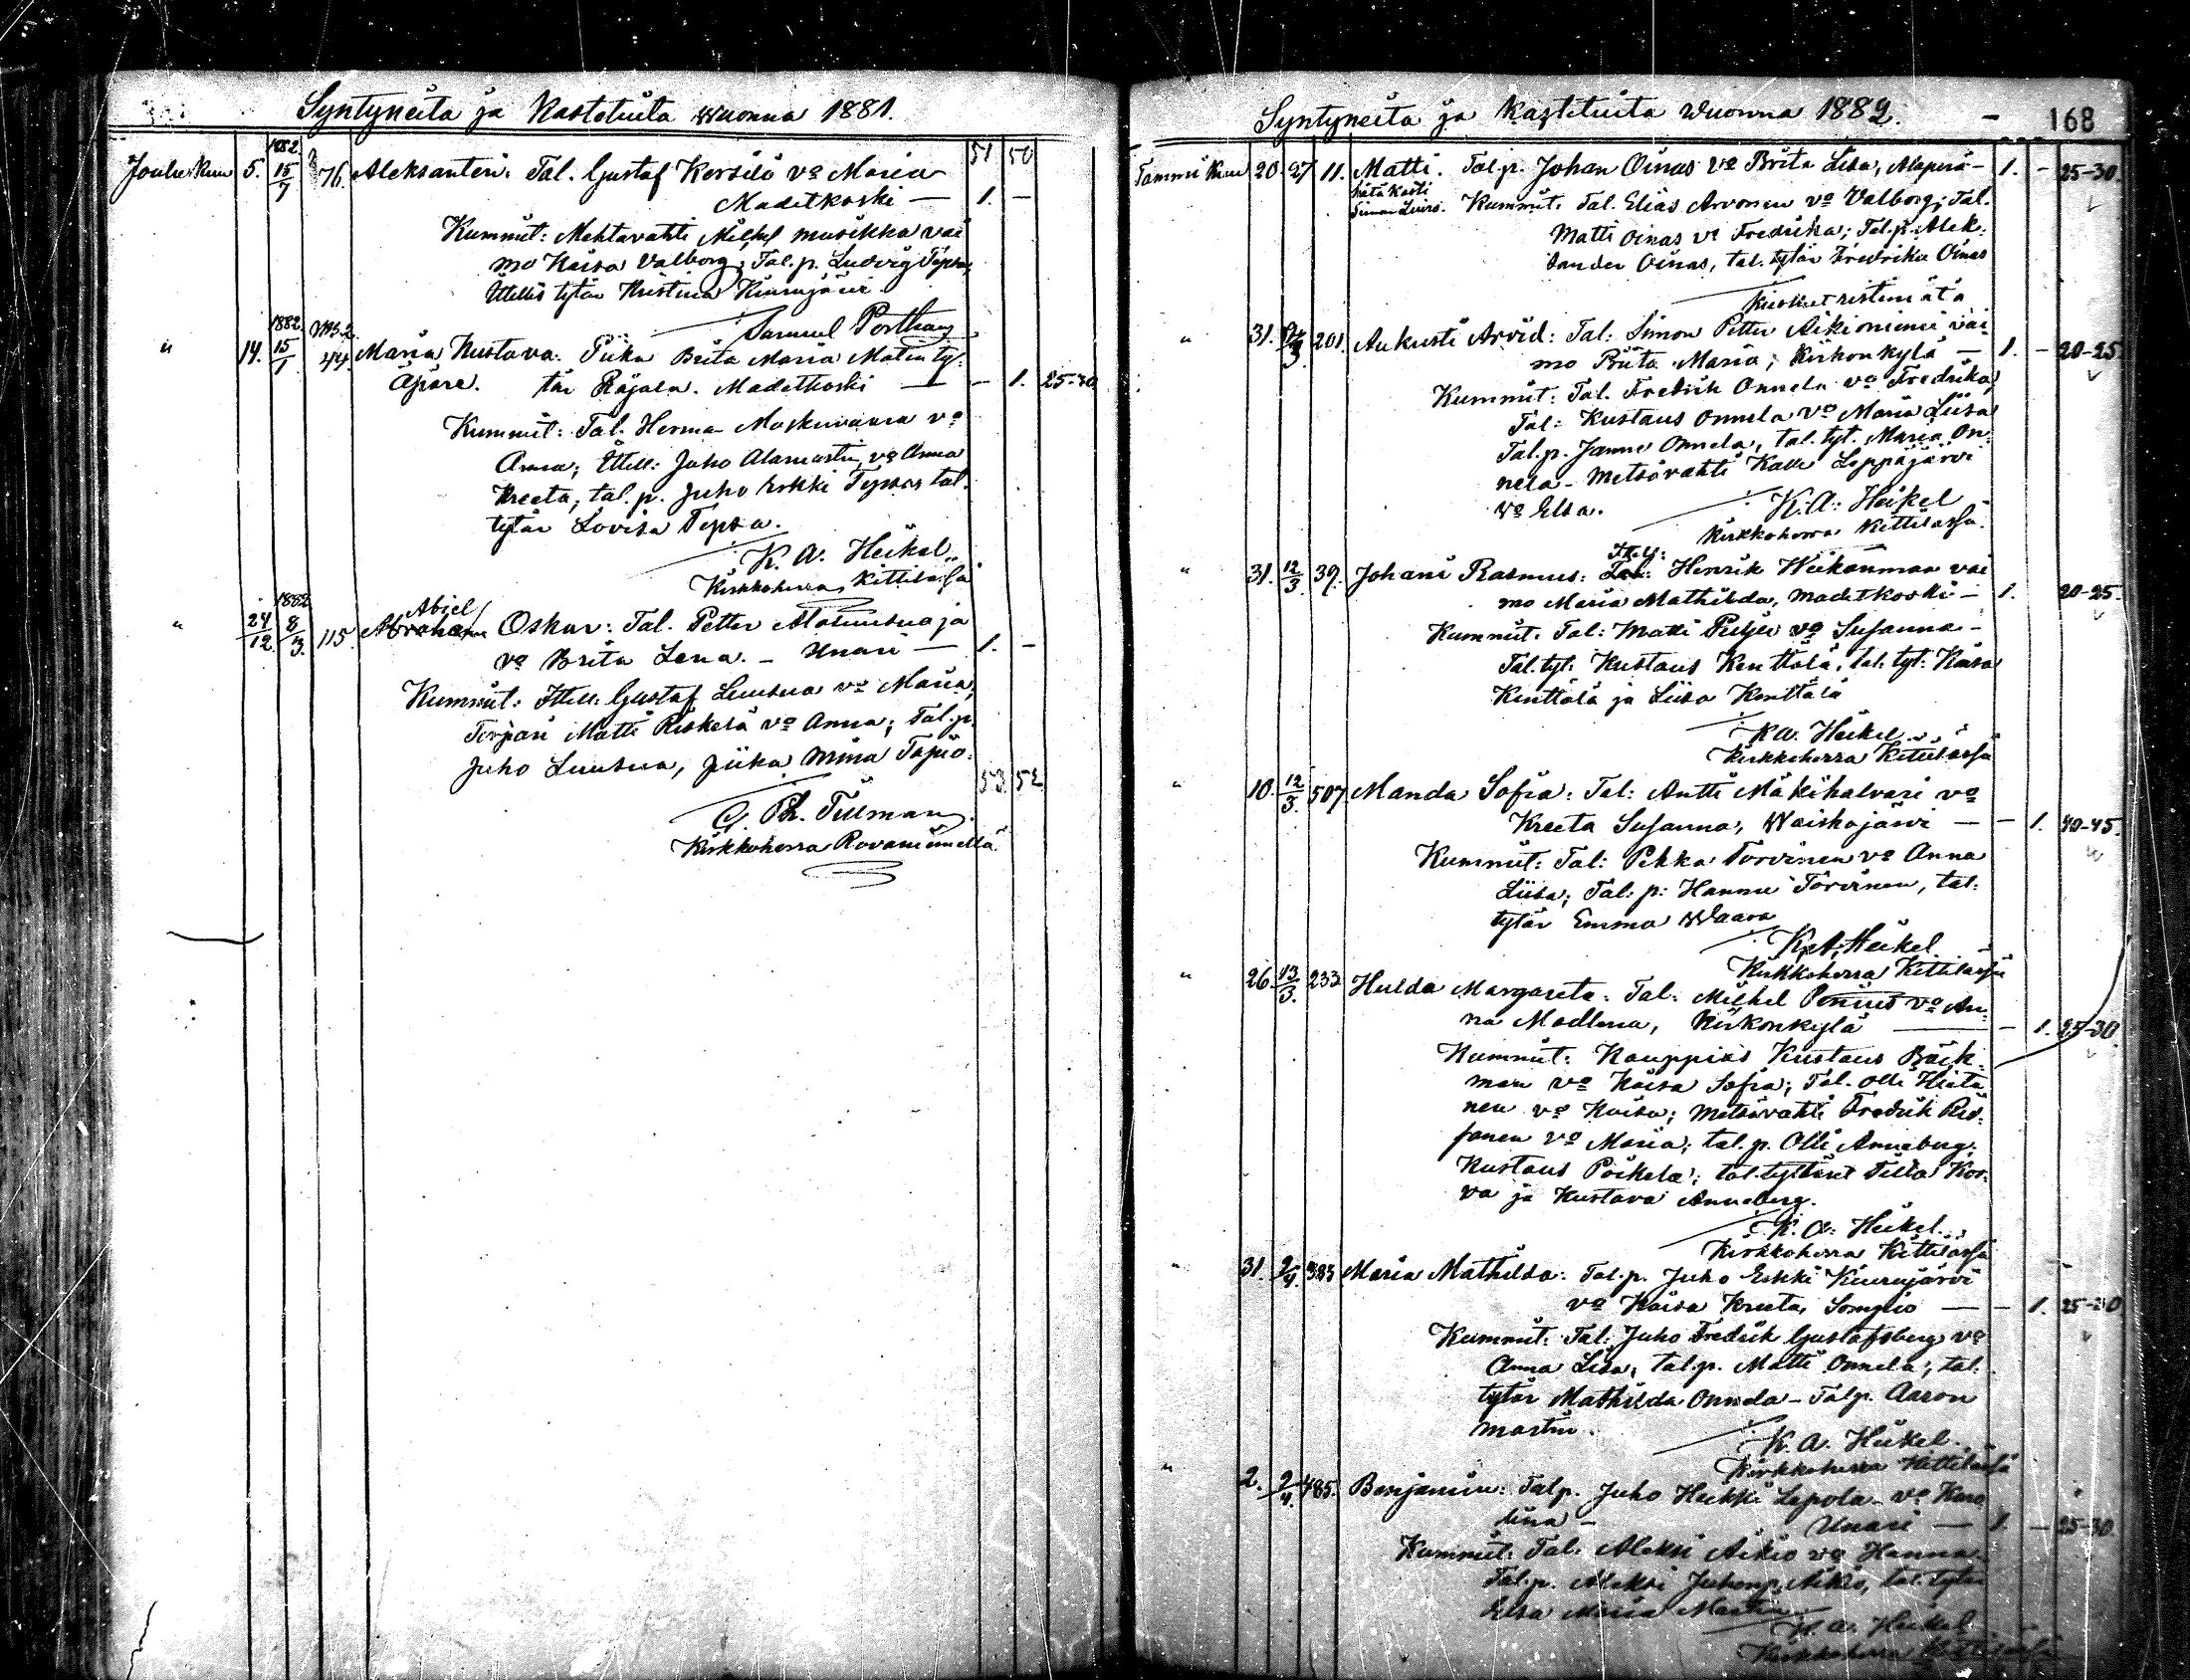 Syntyneitä ja Kastetuita Wuonna 1881.
51 50
Joulu Kuu 5. 1882 15/7 76. Aleksanteri. Tal. Gustaf Kersilö vo Maria
Madetkoski — 1. —
Kummit: Mehtavahti Mikkel musikka vai
mo Kaisa Valborg; Tal.p. Ludvig Tepsa,
Itellis tytär Kristina Kiurujärvi
Samuel Porthan
" 14. 1882 15/1 44 Maria Kustava. Piika Brita Maria Matin ty-
Äpärä. tär Rajala. Madetkoski — — 1. 25-30
Kummit: Tal. Herman Moskuvaara vo
Anna; Itell: Juho Alamartin vo Anna
Kreeta; tal. p. Juho Erkki Tepsa; tal.
tytär Lovisa Tepsa.
K. A. Heikel
Kirkkoherra Kittilässä
" 24/12 1882 8/3. 115. Abraham Abiel Oskar: Tal. Petter Alaluusua ja
vo Brita Lena. — Unari — 1. —
Kummit: Itell. Gustaf Luusua vo Maria;
Torpari Matti Riskelä vo Anna; Tal.p.
Juho Luusua, piika Miina Tapio.
53 52
G. Th. Tillman
Kirkkoherra Rovaniemellä
Syntyneitä ja Kastetuita Wuonna 1882. — 168
Tammi Kuu 20. 27 11. Matti. Tal.p. Johan Oinas vo Brita Lisa, Alaperä — 1. — 25-30.
hätä kasti
Simon Liiro. Kummit: Tal. Elias Arvonen vo Valborg; Tal.
Matti Oinas vo Fredrika; Tal.p. Alek-
sander Oinas, tal. tytär Fredrika Oinas
Kuollut ristimätä
" 31. 3 201. Aukusti Arvid: Tal: Simon Petter Aikioniemi vai
mo Priita Maria; Kirkonkylä — 1. — 20-25
Kummit: Tal. Fredrik Onnela vo Fredrika,
Tal: Kustaus Onnela vo Maria Liisa
Tal.p. Janne Onnela, tal. tyt. Maria On-
nela - Metsävahti Kalle Leppäjärvi
vo Elsa.
K. A. Heikel
Kirkkoherra Kittilässä.
" 31. 12/3 39. Johani Rasmus: Tal: Itell: Henrik Weikanmaa vai
mo Maria Mathilda, Madetkoski — 1. 20-25.
Kummit: Tal: Matti Puljer vo Susanna —
Tal.tyt: Kustaus Kenttälä, tal. tyt: Kaisa
Kenttälä ja Liisa Kenttälä
K A. Heikel
Kirkkoherra Kittilässä
" 10. 12/3. 507 Manda Sofia: Tal: Antti Mäkihalvari vo
Kreeta Susanna, Waiskojärvi — — 1. 40-45.
Kummit: Tal: Pekka Torvinen vo Anna
Liisa; Tal: p: Hannu Torvinen, tal:
tytär Emma Waara
K. A. Heikel
Kirkkoherra Kittilässä
" 26. 13/3. 233 Hulda Margareta: Tal: Mikkel Penius vo An-
na Madlena, Kirkonkylä — — 1. 25-30.
Kummit: Kauppias Kustaus Bäck-
man vo Kaisa Sofia; Tal. Olli Hieta
nen vo Kaisa; Metsävahti Fredrik Ris-
sanen vo Maria; tal. p. Olli Anneberg;
Kustaus Poikela; tal. tyttäret Tilta Kor-
va ja Kustava Anneberg.
K. A. Heikel
Kirkkoherra Kittilässä
" 31. 2/4. 383 Maria Mathilda: Tal.p. Juho Erkki Kiurujärvi
vo Kaisa Kreeta, Sompio — — 1. 25-30
Kummit: Tal: Juho Fredrik Gustafsberg vo
Anna Lisa; tal.p. Matti Onnela; tal.
tytär Mathilda Onnela — Tal.p. Aaron
Martin.
K. A. Heikel
Kirkkoherra Kittilässä
" 2. 2/4. 485. Benjamin: Tal.p. Juho Heikki Lepola - vo Karo
lina — Unari — 1. — 25-30.
Kummit: Tal. Aleksi Aikio vo Hanna.
Tal.p. Aleksi Juhonp. Aikio, tal. tytär
Elsa Maria Martin
K. A. Heikel
Kirkkoherra Kittilässä